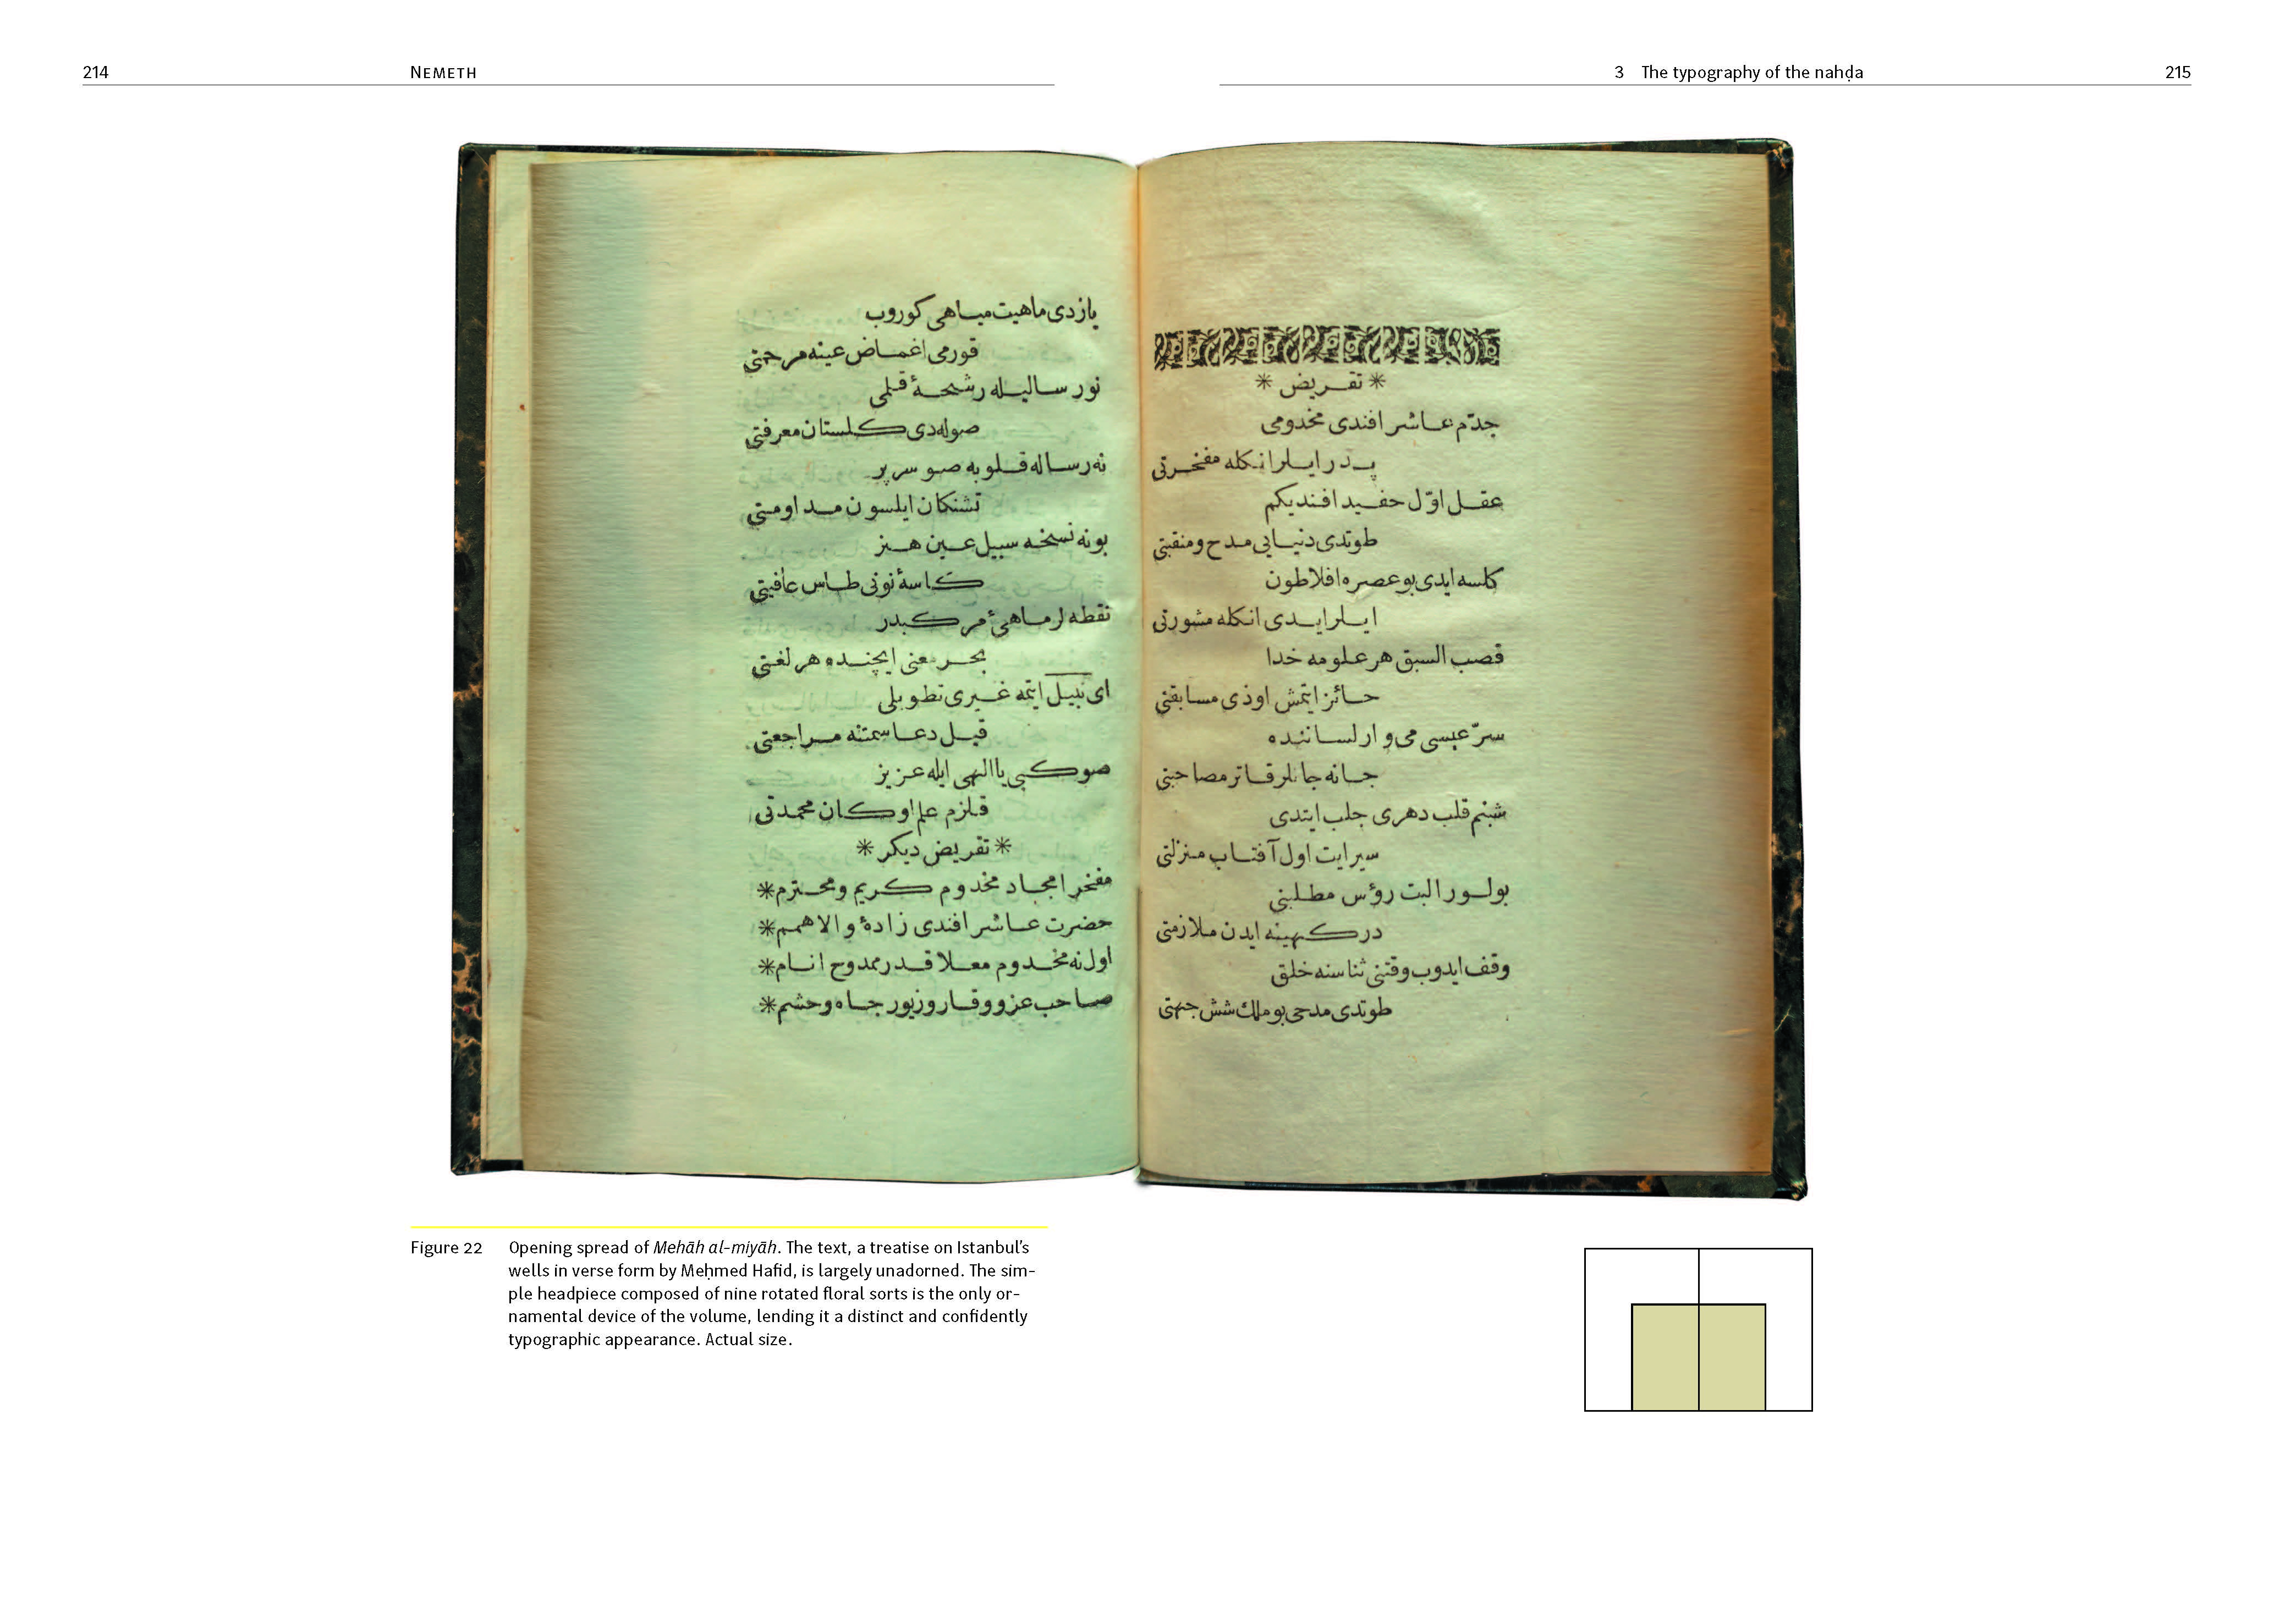 214
NEMETH
3 The typography of the nahḍa
215
* تقريض *
جدّم عاشر افندی مخدومی
پدر ایلر انکله مفخرتی
عقل اوّل حفید افندیکم
طوتدی دنیایی مدح ومنقبتی
کلسه ایدی بو عصره افلاطون
ایلر ایدی انکله مشورتی
قصب السبق هر علومه خدا
حائز ایتمش اوذی مسابقتی
سرّ عیسی می وار لساننده
جانه جانلر قاتر مصاحبتی
شبنم قلب دهری جلب ایتدی
سیر ایت اول آفتاب منزلتی
بولور البت رؤس مطلبنی
در کهینه ایدن ملازمتی
وقف ایدوب وقتنی ثناسنه خلق
طوتدی مدحی بو ملك شش جهتی
یازدی ماهیت میاهی کوروب
قورمی اغماض عینه مرحمتی
نور سالیله رشحهٔ قلمی
صوله دی کلستان معرفتی
نه رساله قلوبه صو سرپر
تشنکان ایلسون مداومتی
بونه نسخه سبیل عین هنر
کاسهٔ نونی طاس عافیتی
نقطه لر ماهیٔ مرکبدر
بحر معنی ایچنده هر لغتی
ای نبیل ایتمه غیری تطویلی
قیل دعا سمتنه مراجعتی
صو کبی یا الهی ایله عزیز
قلزم علم اوکان محمدتی
* تقریض دیکر *
مفخر امجاد مخدوم کریم ومحترم *
حضرت عاشر افندی زادهٔ والاهمم *
اول نه مخدوم معلا قدر ممدوح انام *
صاحب عز و وقار وزیور جاه وحشم *
Figure 22 Opening spread of Mehāh al-miyāh. The text, a treatise on Istanbul’s
wells in verse form by Meḥmed Hafid, is largely unadorned. The sim-
ple headpiece composed of nine rotated floral sorts is the only or-
namental device of the volume, lending it a distinct and confidently
typographic appearance. Actual size.